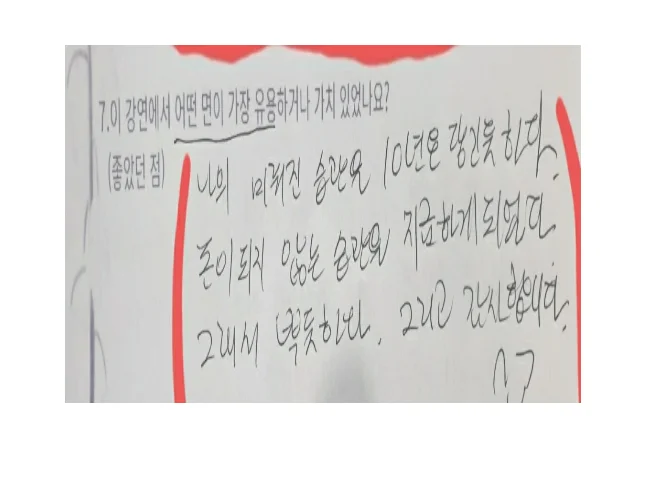 7.이 강연에서 어떤 면이 가장 유용하거나 가치 있었나요?
(좋았던 점)
나의 미뤄진 습관은 10년은 당긴듯 한다.
돈이 되지 않는 습관을 지금하게 되었다.
그래서 뿌듯하다. 그리고 감사합니다.